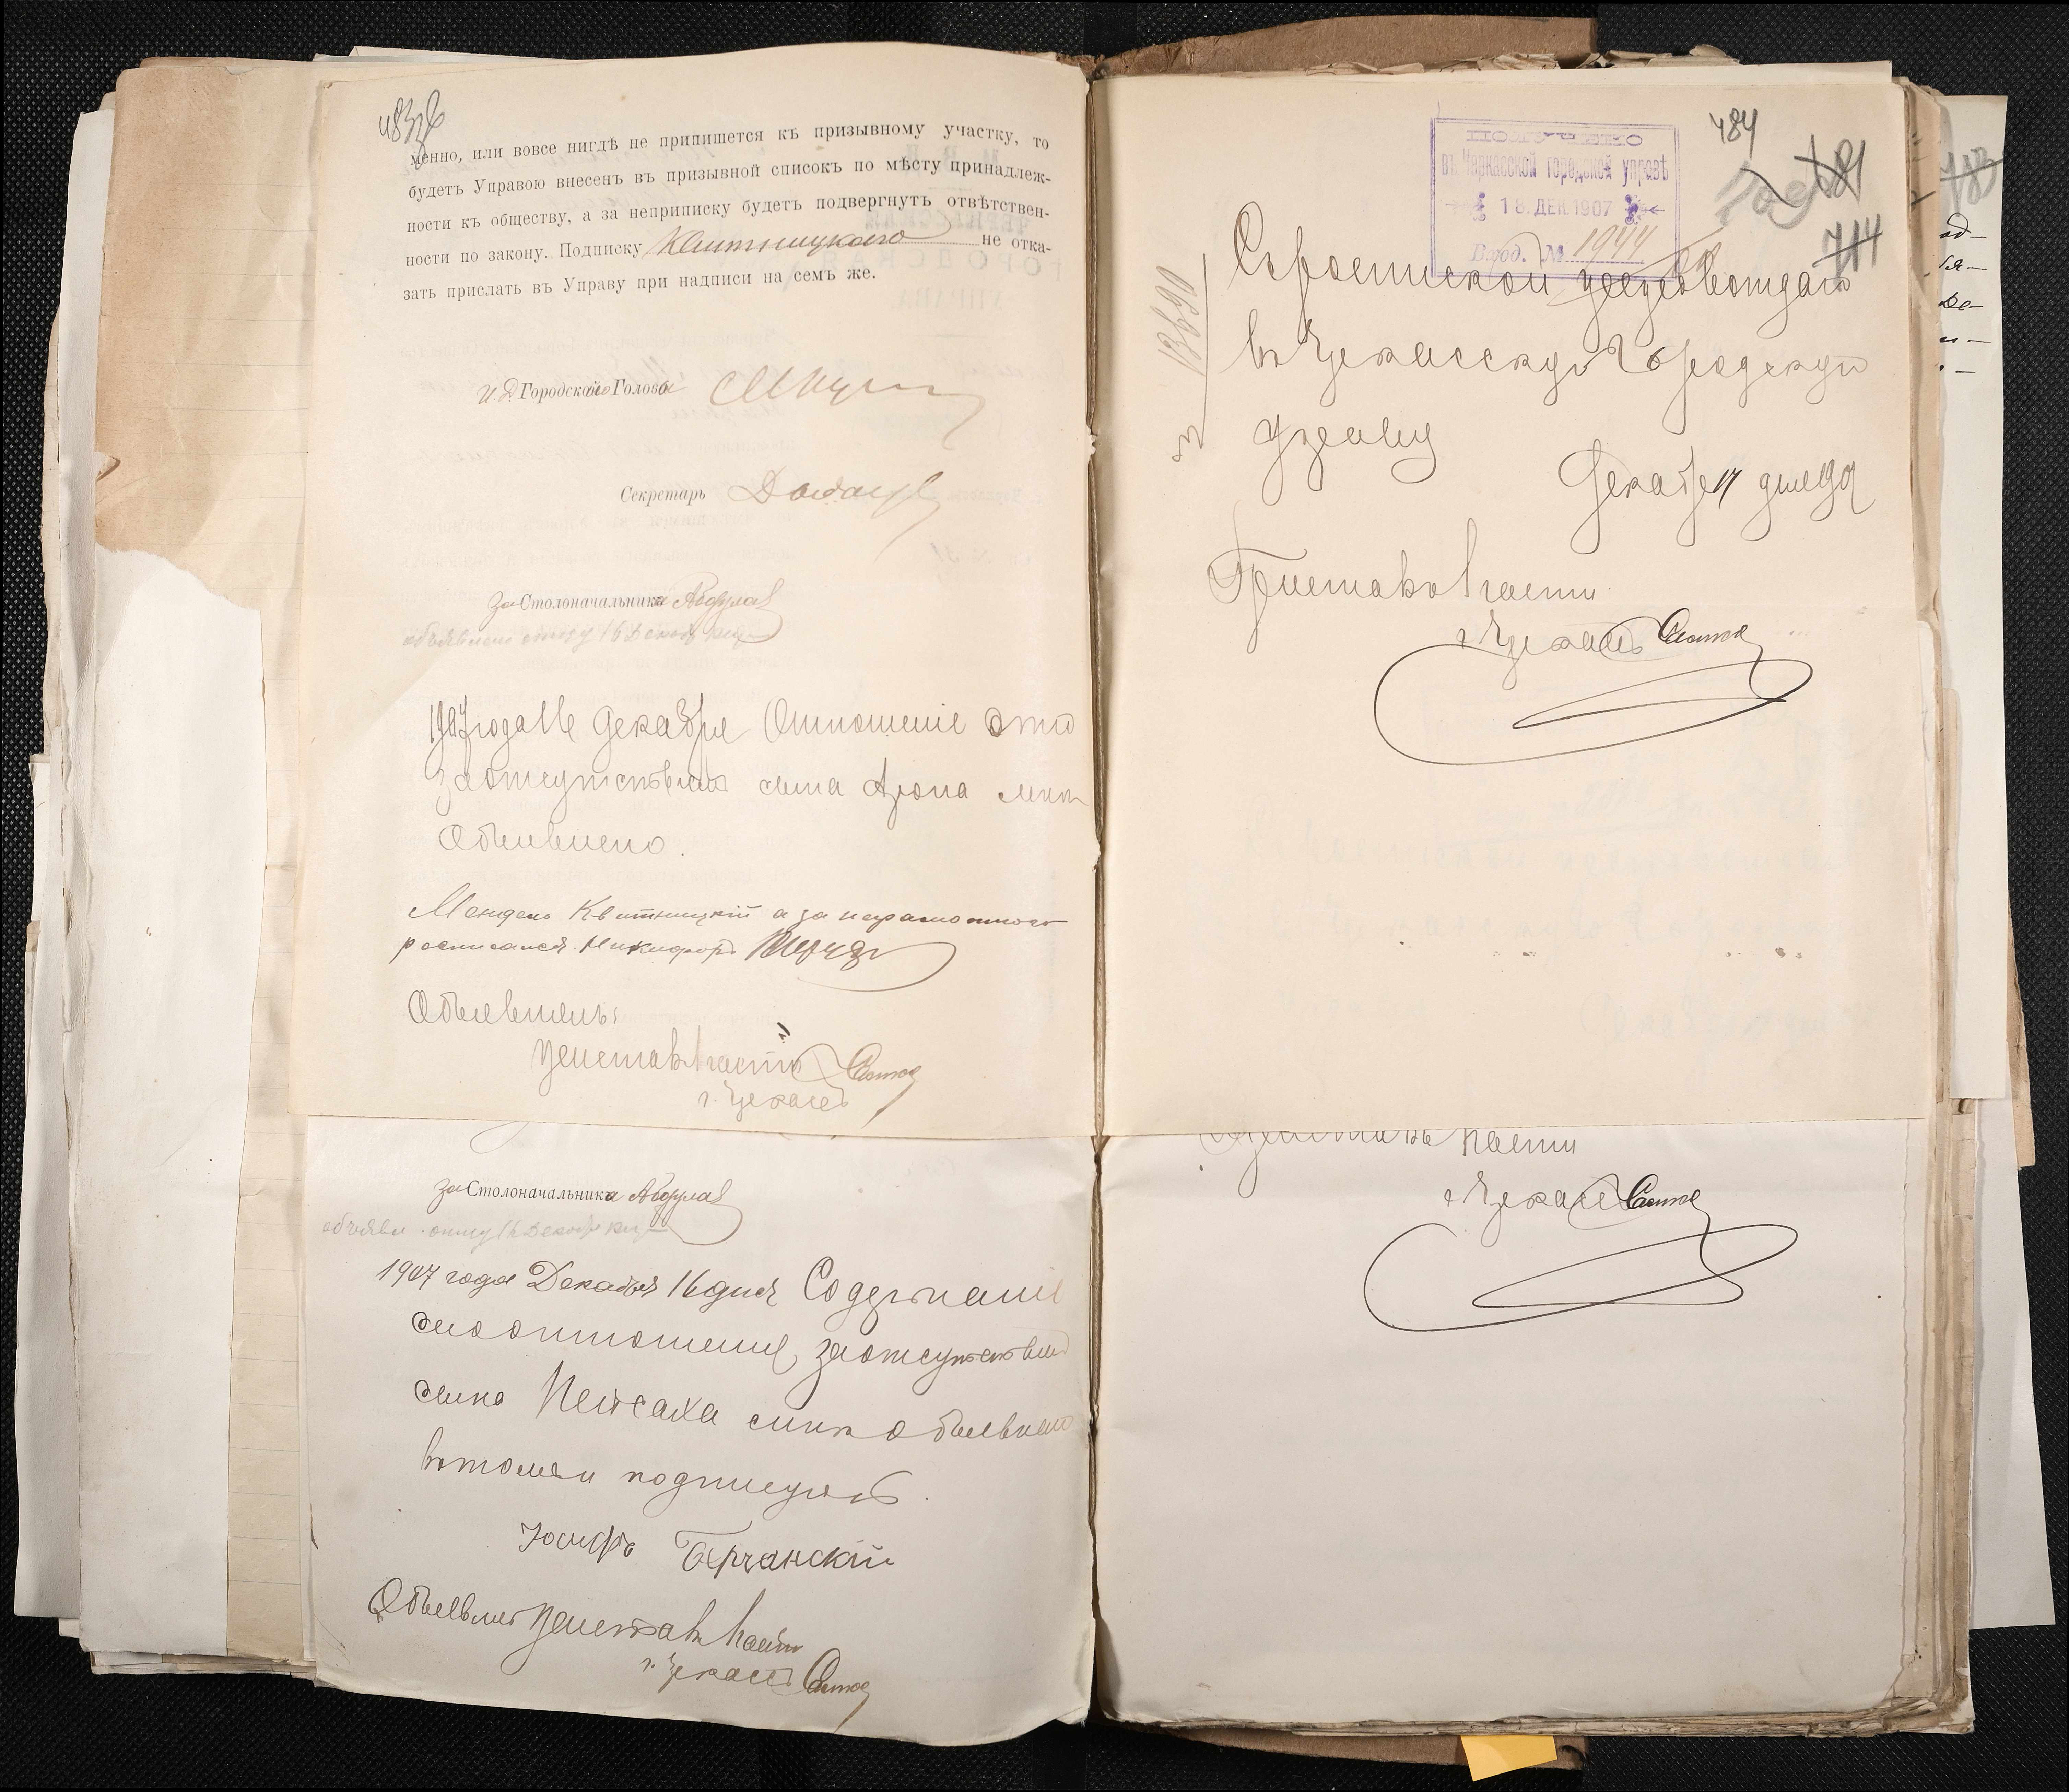 менно, или вовсе нигдѣ не припишется къ призывному участку, то
будетъ Управою внесенъ въ призывной списокъ по мѣсту принадлеж-
ности къ обществу, а за неприписку будетъ подвергнутъ отвѣтствен-
ности по закону. Подписку Квитницкаго не отка-
зать прислать въ Управу при надписи на семъ же.
И. д. Городского Головы
Секретарь
За Столоначальника
объявлено отцу 16 Декабря
1907 года 16 Декабря Отношеніе это
за отсутствіемъ сына Арона мнѣ
Объявлено.
Мендель Квитницкій а за неграмотного
росписался Никифоръ
Объявилъ:
Приставъ I части
г. Черкасъ
За Столоначальника
объявл. отцу 16 Декабр
1907 года Декабря 16 дня Содержаніе
сего отношенія, за отсутствіемъ
сына Пейсаха мнѣ объявлено
въ томъ и подписуюсь.
Іосифъ Берчанскій
Объявилъ Приставъ I части
г. Черкасъ
484
481
714
ПОЛУЧЕНО
въ Черкасской городской управѣ
18. ДЕК. 1907
Вход. № 1944
13690
Съ роспиской представляю
въ Черкасскую Городскую
Управу
Декабря 17 дня 1907
Приставъ I части
г. Черкасъ
Приставъ I части
г. Черкасъ
783